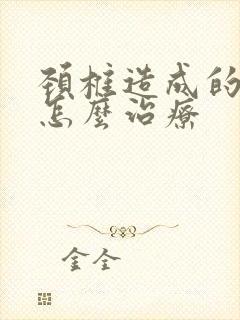 頚椎造成的
怎麼治療
金全